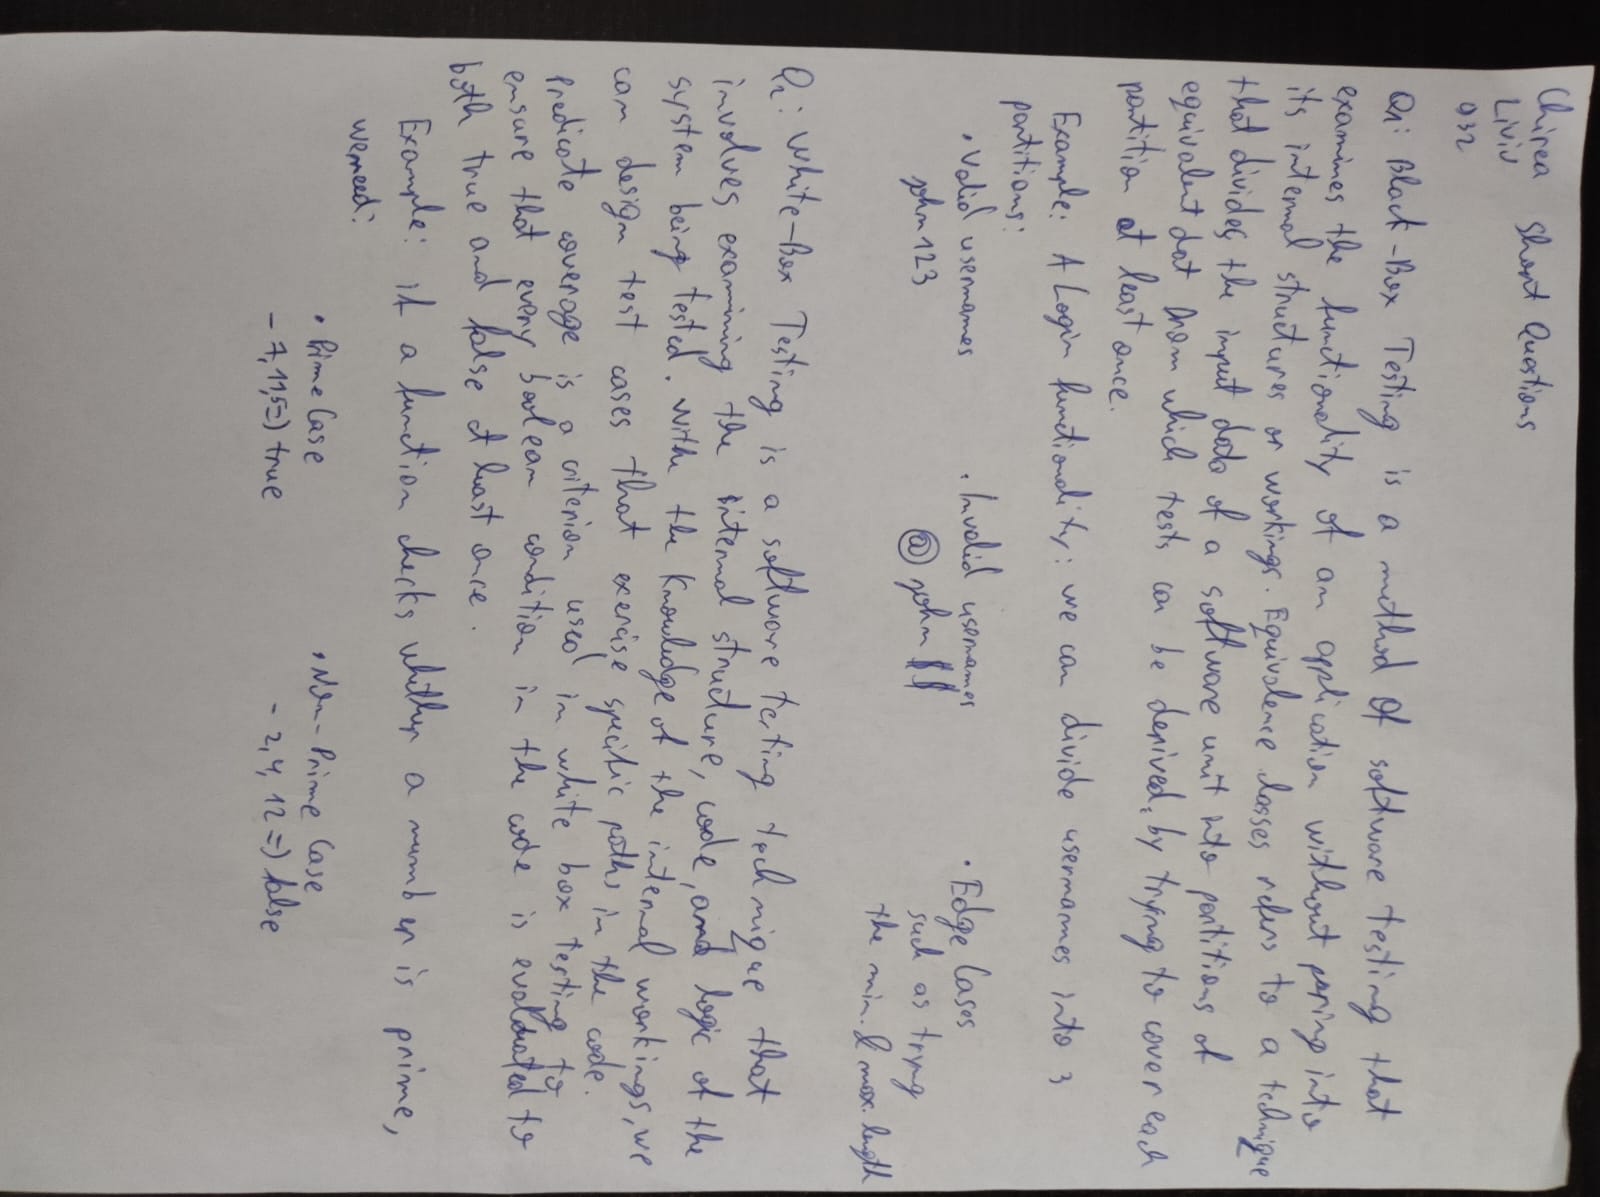 Chirea Short Questions
Liviu
932
Q1: Black-Box Testing is a method of software testing that
examines the functionality of an application without pering into
its internal structures or workings. Equivalence lasses refers to a technique
that divides the input data of a software unit into partitions of
equivalent dat from which tests can be derived, by trying to cover each
partition at least once.
Example: A Login functionality: we can divide usernames into 3
partitions:
• Valid usernames • Invalid usernames • Edge Cases
john123 @john$$ such as tryng
the min. & max. length
Q2: White-Box Testing is a software testing technique that
involves examining the internal structure, code, and logic of the
system being tested. Withe the Knowledge of the internal workings, we
can design test cases that exercise specific paths in the code.
Predicate coverage is a criterion used in white box testing to
ensure that every boolean condition in the code is evaluated to
both true and false at least once.
Example: if a function checks whether a number is prime,
we need:
• Prime Case • Non-Prime Case
- 7, 11, 5 => true - 2, 4, 12 => false